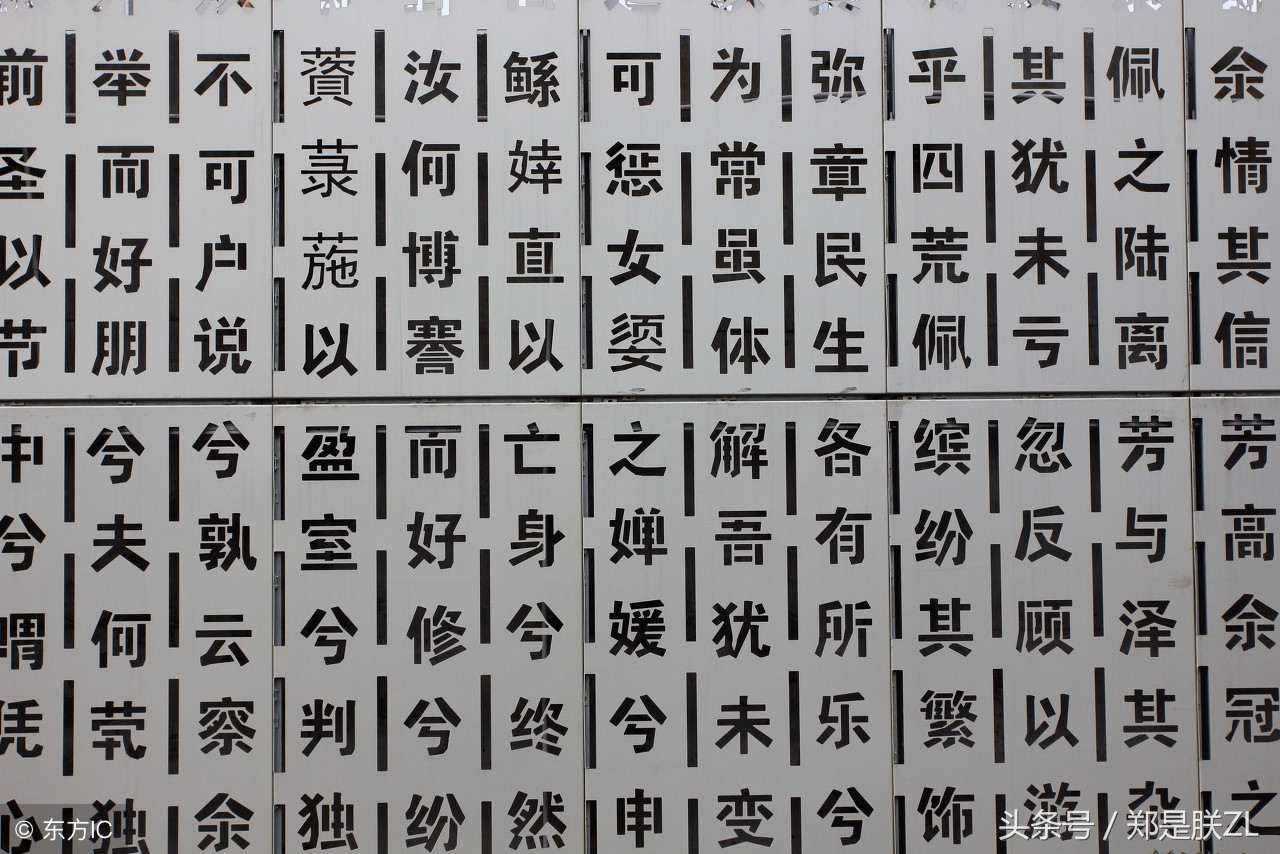 余情其信芳高余冠之
佩之陆离芳与泽其杂
其犹未亏忽反顾以游
乎四荒佩缤纷其繁饰
弥章民生各有所乐兮
为常虽体解吾犹未变
可惩女媭之婵媛兮申
鲧婞直以亡身兮终然
汝何博謇而好修兮纷
薋菉葹以盈室兮判独
不可户说兮孰云察余
举而好朋兮夫何茕独
前圣以节中兮喟凭心
© 东方IC
头条号 / 郑是朕ZL